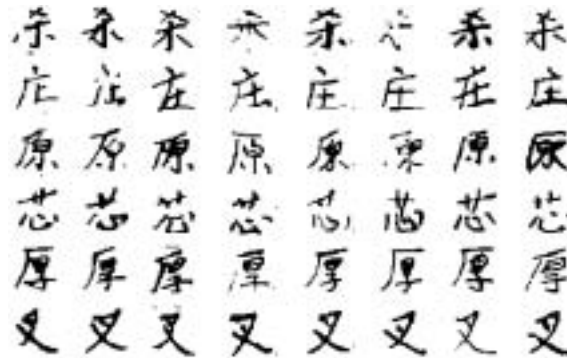 杀 杀 杀 杀 杀 杀 杀
庄 庄 庄 庄 庄 庄 庄 庄
原 原 原 原 原 原 原 原
芯 芯 芯 芯 芯 芯 芯 芯
厚 厚 厚 厚 厚 厚 厚 厚
叉 叉 叉 叉 叉 叉 叉 叉